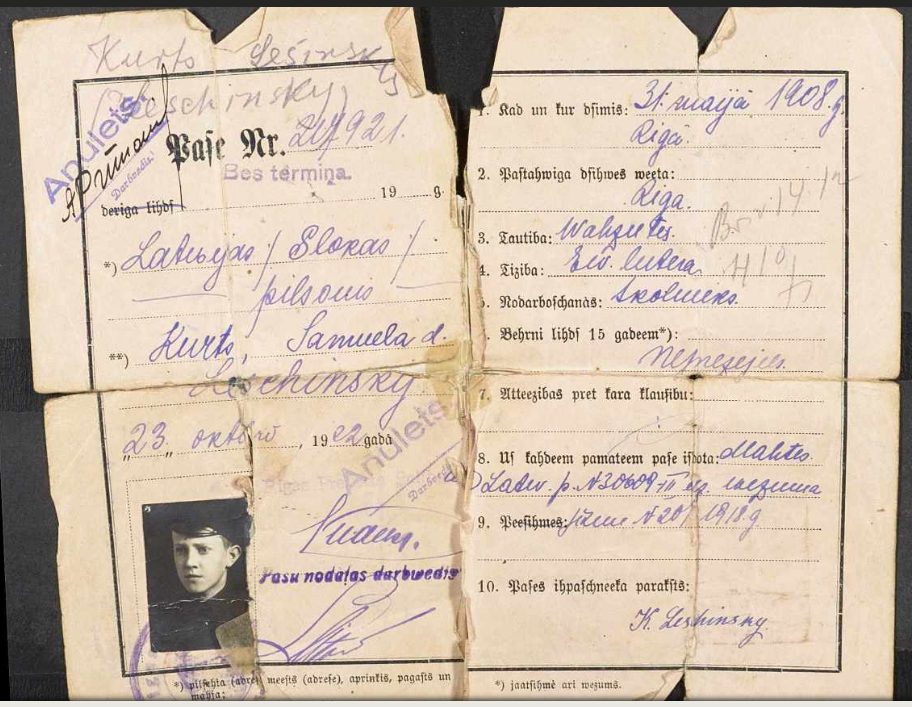 Kurts Lešinskijs
(Leschinsky)
Anulets.
Darbwedis:
Paſe Nr. 217921.
Bes termiņa.
deriga lihdſ 19 g.
*) Latwijas / Slokas /
pilsonis
**) Kurts, Samuela d.
Leschinsky
"23" oktobrī, 1922 gadā
Anulets.
Darbwedis
Pasu nodaļas darbwedis
*) pilſehta (adreſe) meeſts (adreſe), aprinķis, pagaſts un
mahja:
1. Kad un kur dſimis: 31. maijā 1908 g.
Rīgā.
2. Paſtahwiga dſihwes weeta:
Rīgā.
3. Tautiba: Wahzeetis.
4. Tiziba: Ew. lutera
5. Nodarboſchanās: skolneeks.
6. Behrni lihdſ 15 gadeem*):
7. Atteezibas pret kara klauſibu:
8. Uſ kahdeem pamateem paſe iſdota: Mahtes
Latw. p. N30609
9. Peeſihmes: N 1918 g
10. Paſes ihpaſchneeka parakſts:
K. Leshinsky
*) jaatſihmē arī wezums.